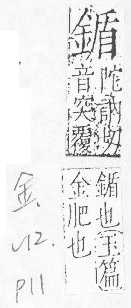 鍎
陀訥切
音突覆
鍎也玉篇
金肥也
金
P11